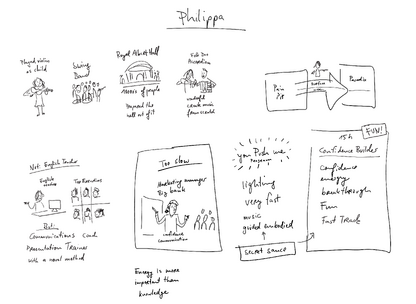 Philippa
Played violin
as child
String
Band
Royal Albert Hall
1000's of people
Folk Duo
Accordion
create music
from scratch
Pain
Pit
Paradise
Not: English Teacher
English
teacher
Top Executives
But:
Communications Coach
Presentation Trainer
with a novel method
Too Slow
Marketing manager
Big bank
confidence
communication
Energy is more
important than
knowledge
you Push me
lighting
very fast
music
guided embodied
SECRET SAUCE
FUN!
Confidence Builder
confidence
energy
breakthrough
Fun
Fast Track